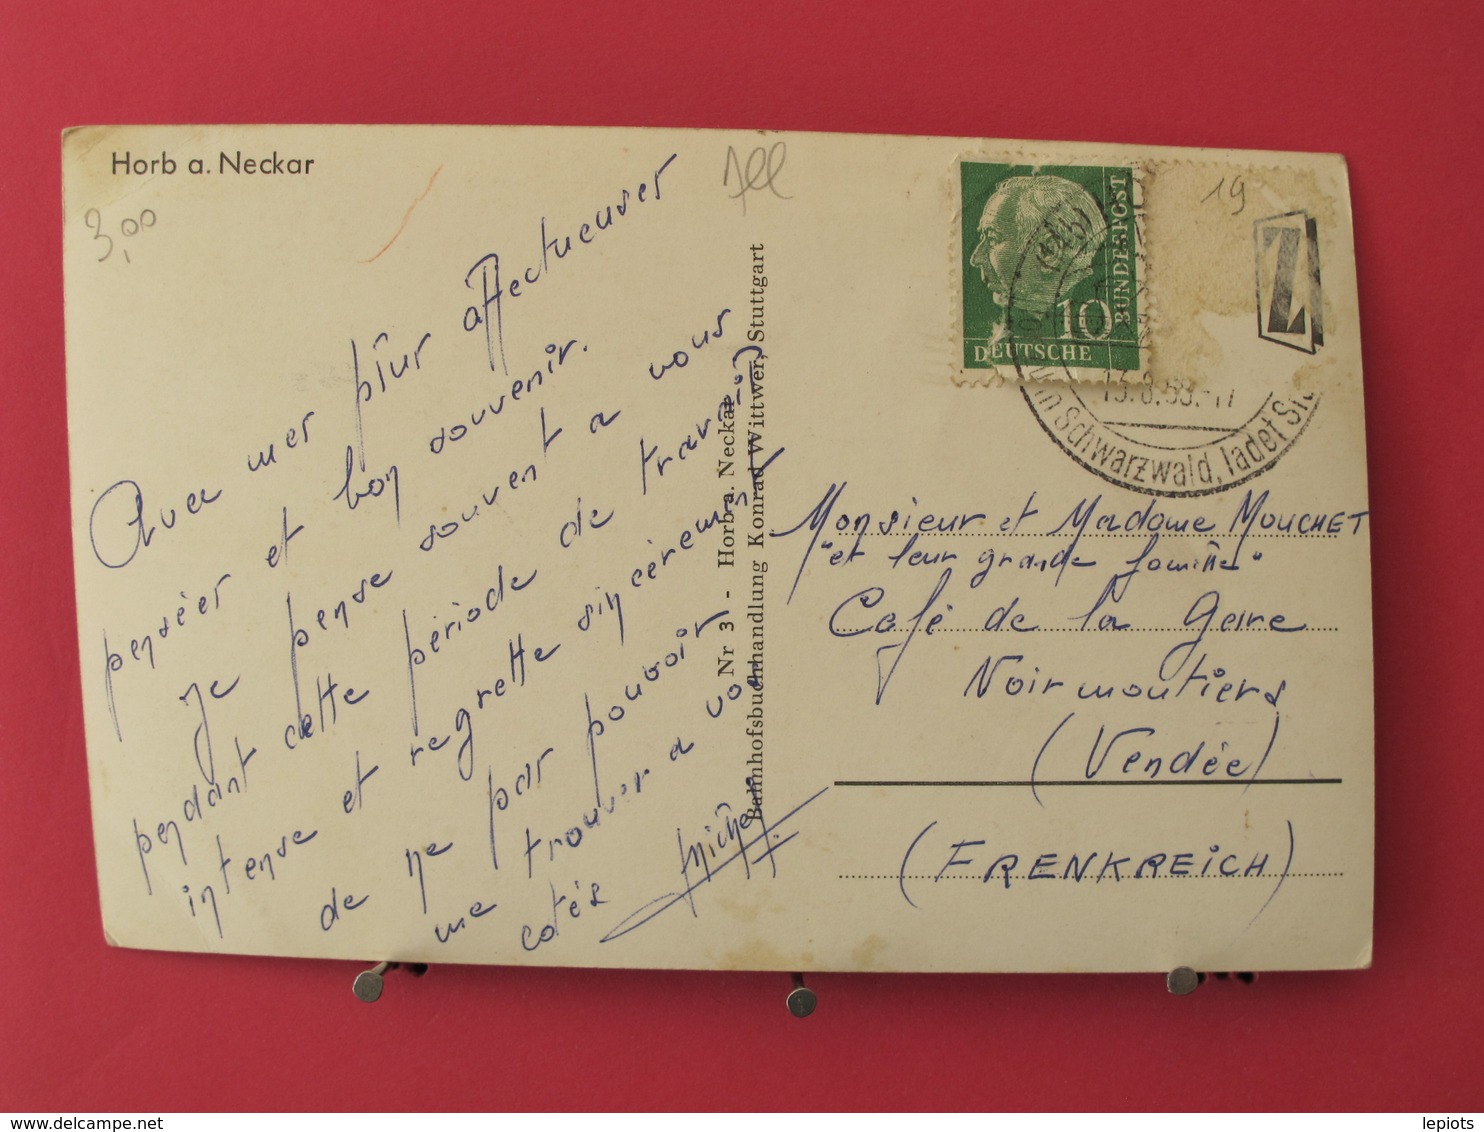 Horb a. Neckar
3,00
All
19
Avec mes plus affectueuses
pensées et bon souvenir.
Je pense souvent à vous
pendant cette période de travail
intense et regrette sincèrement
de ne pas pouvoir
me trouver à vos
cotés
Michel
Nr 3 - Horb a. Neckar
Bahnhofsbuchhandlung Konrad Wittwer, Stuttgart
DEUTSCHE
BUNDESPOST
10
Z
15.8.58.-17
Schwarzwald, ladet
Monsieur et Madame MOUCHET
"et leur grande famille"
Café de la Gare
Noirmoutiers
(Vendée)
(FRENKREICH)
delcampe.net
lepiots